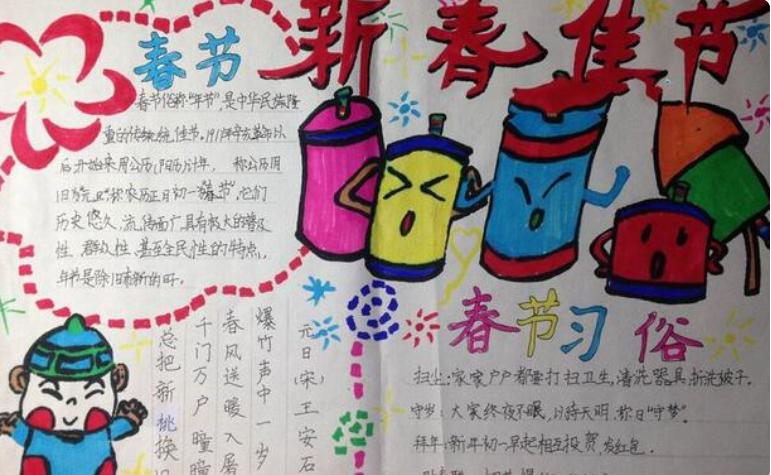 新春佳节
春节
春节俗称"年节",是中华民族隆
重的传统佳节。1911年辛亥革命以
后开始采用公历(阳历)计年, 称公历1月
1日为元旦"称农历正月初一"春节",它们
历史悠久,流传面广具有极大的普及
性,群众性,甚至全民性的特点,
年节是除旧布新的日子。
元日(宋)王安石
爆竹声中一岁
春风送暖入屠
千门万户曈曈
总把新桃换旧
春节习俗
扫尘:家家户户都要打扫卫生,清洗器具,拆洗被子。
守岁:大家终夜不眠,以待天明,称曰"守岁"。
拜年:新年初一早起相互投贺,发红包.